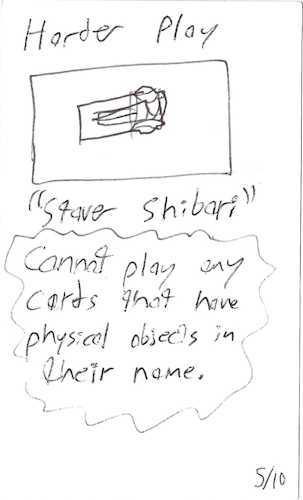 Harder Play
"Staver Shibari"
Cannot play any
cards that have
physical objects in
their name.
5/10